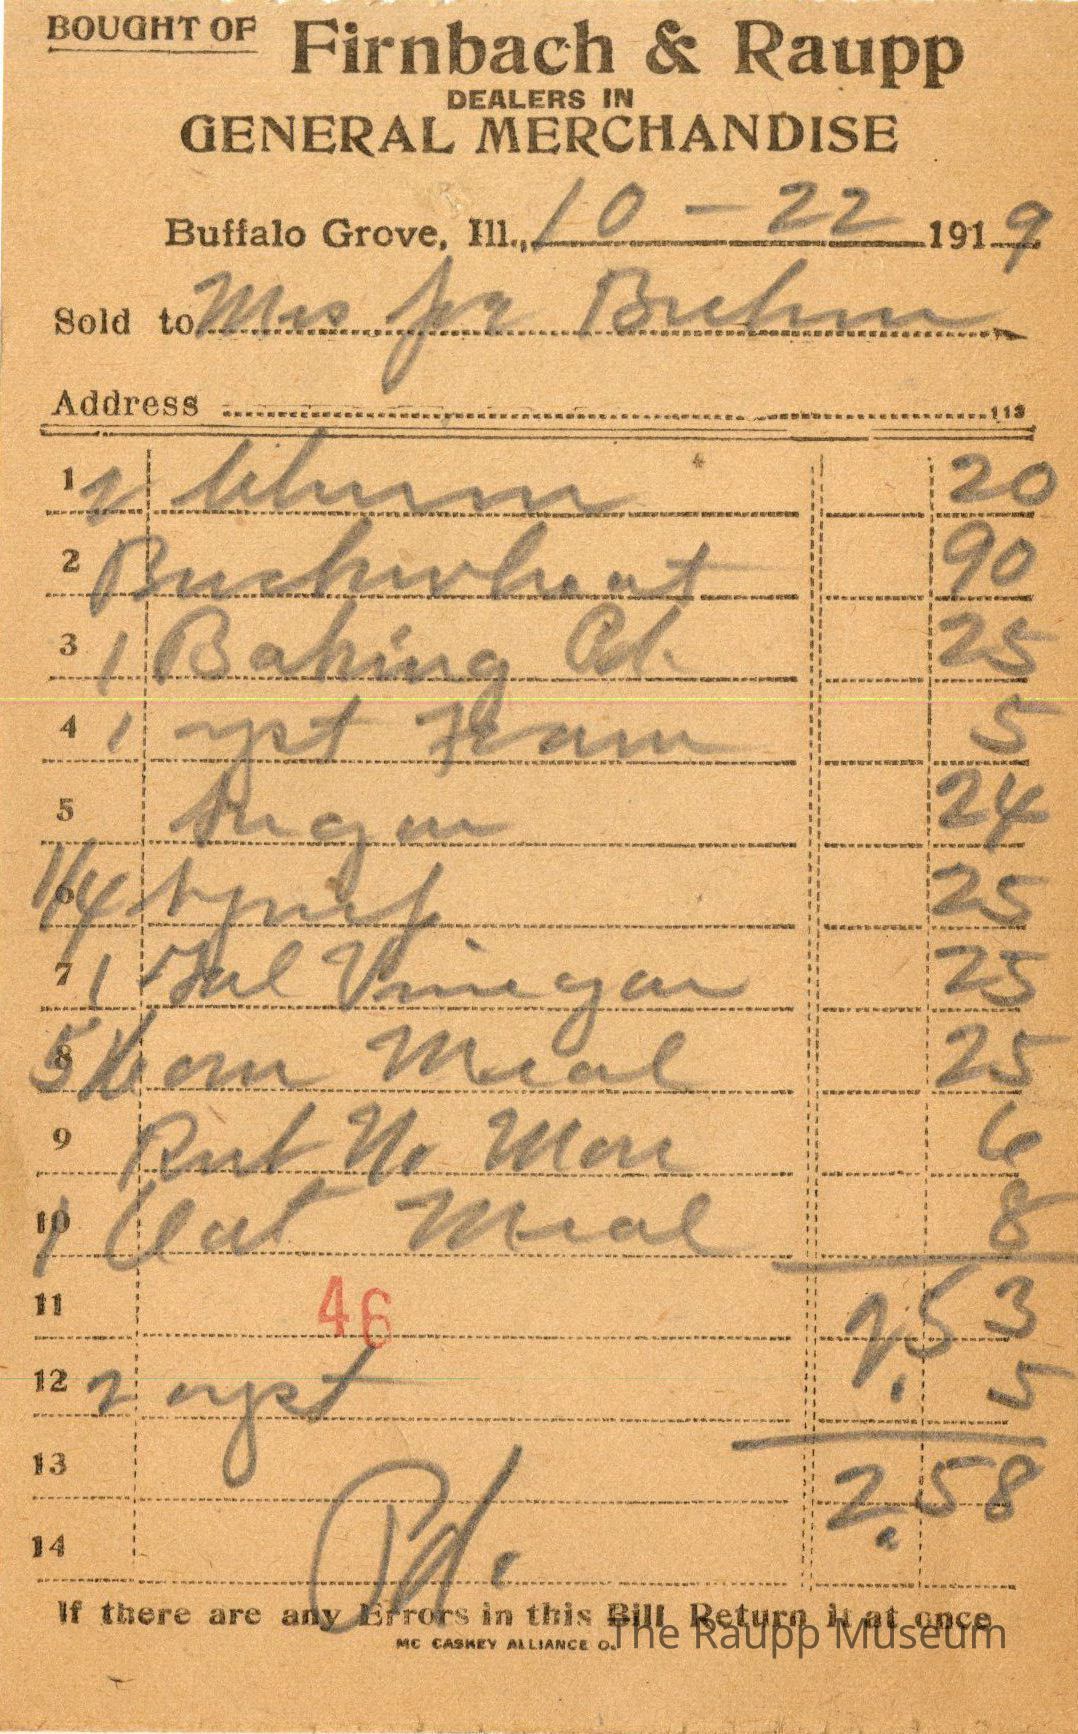 BOUGHT OF Firnbach & Raupp
DEALERS IN
GENERAL MERCHANDISE
Buffalo Grove, Ill., 10 - 22 1919
Sold to Mrs
Address 113
1 2 20
2 Buckwheat 90
3 1 Baking Pd. 25
4 1 yst Foam 5
5 Sugar 24
6 1/4 25
7 1 Gal Vinegar 25
8 5 lb Corn Meal 25
9 Rub No More 6
10 1 Oat Meal 8
11 46 2.53
12 2 yst 5
13 2.58
14 Pd.
If there are any Errors in this Bill Return it at once
MC CASKEY ALLIANCE O.
The Raupp Museum